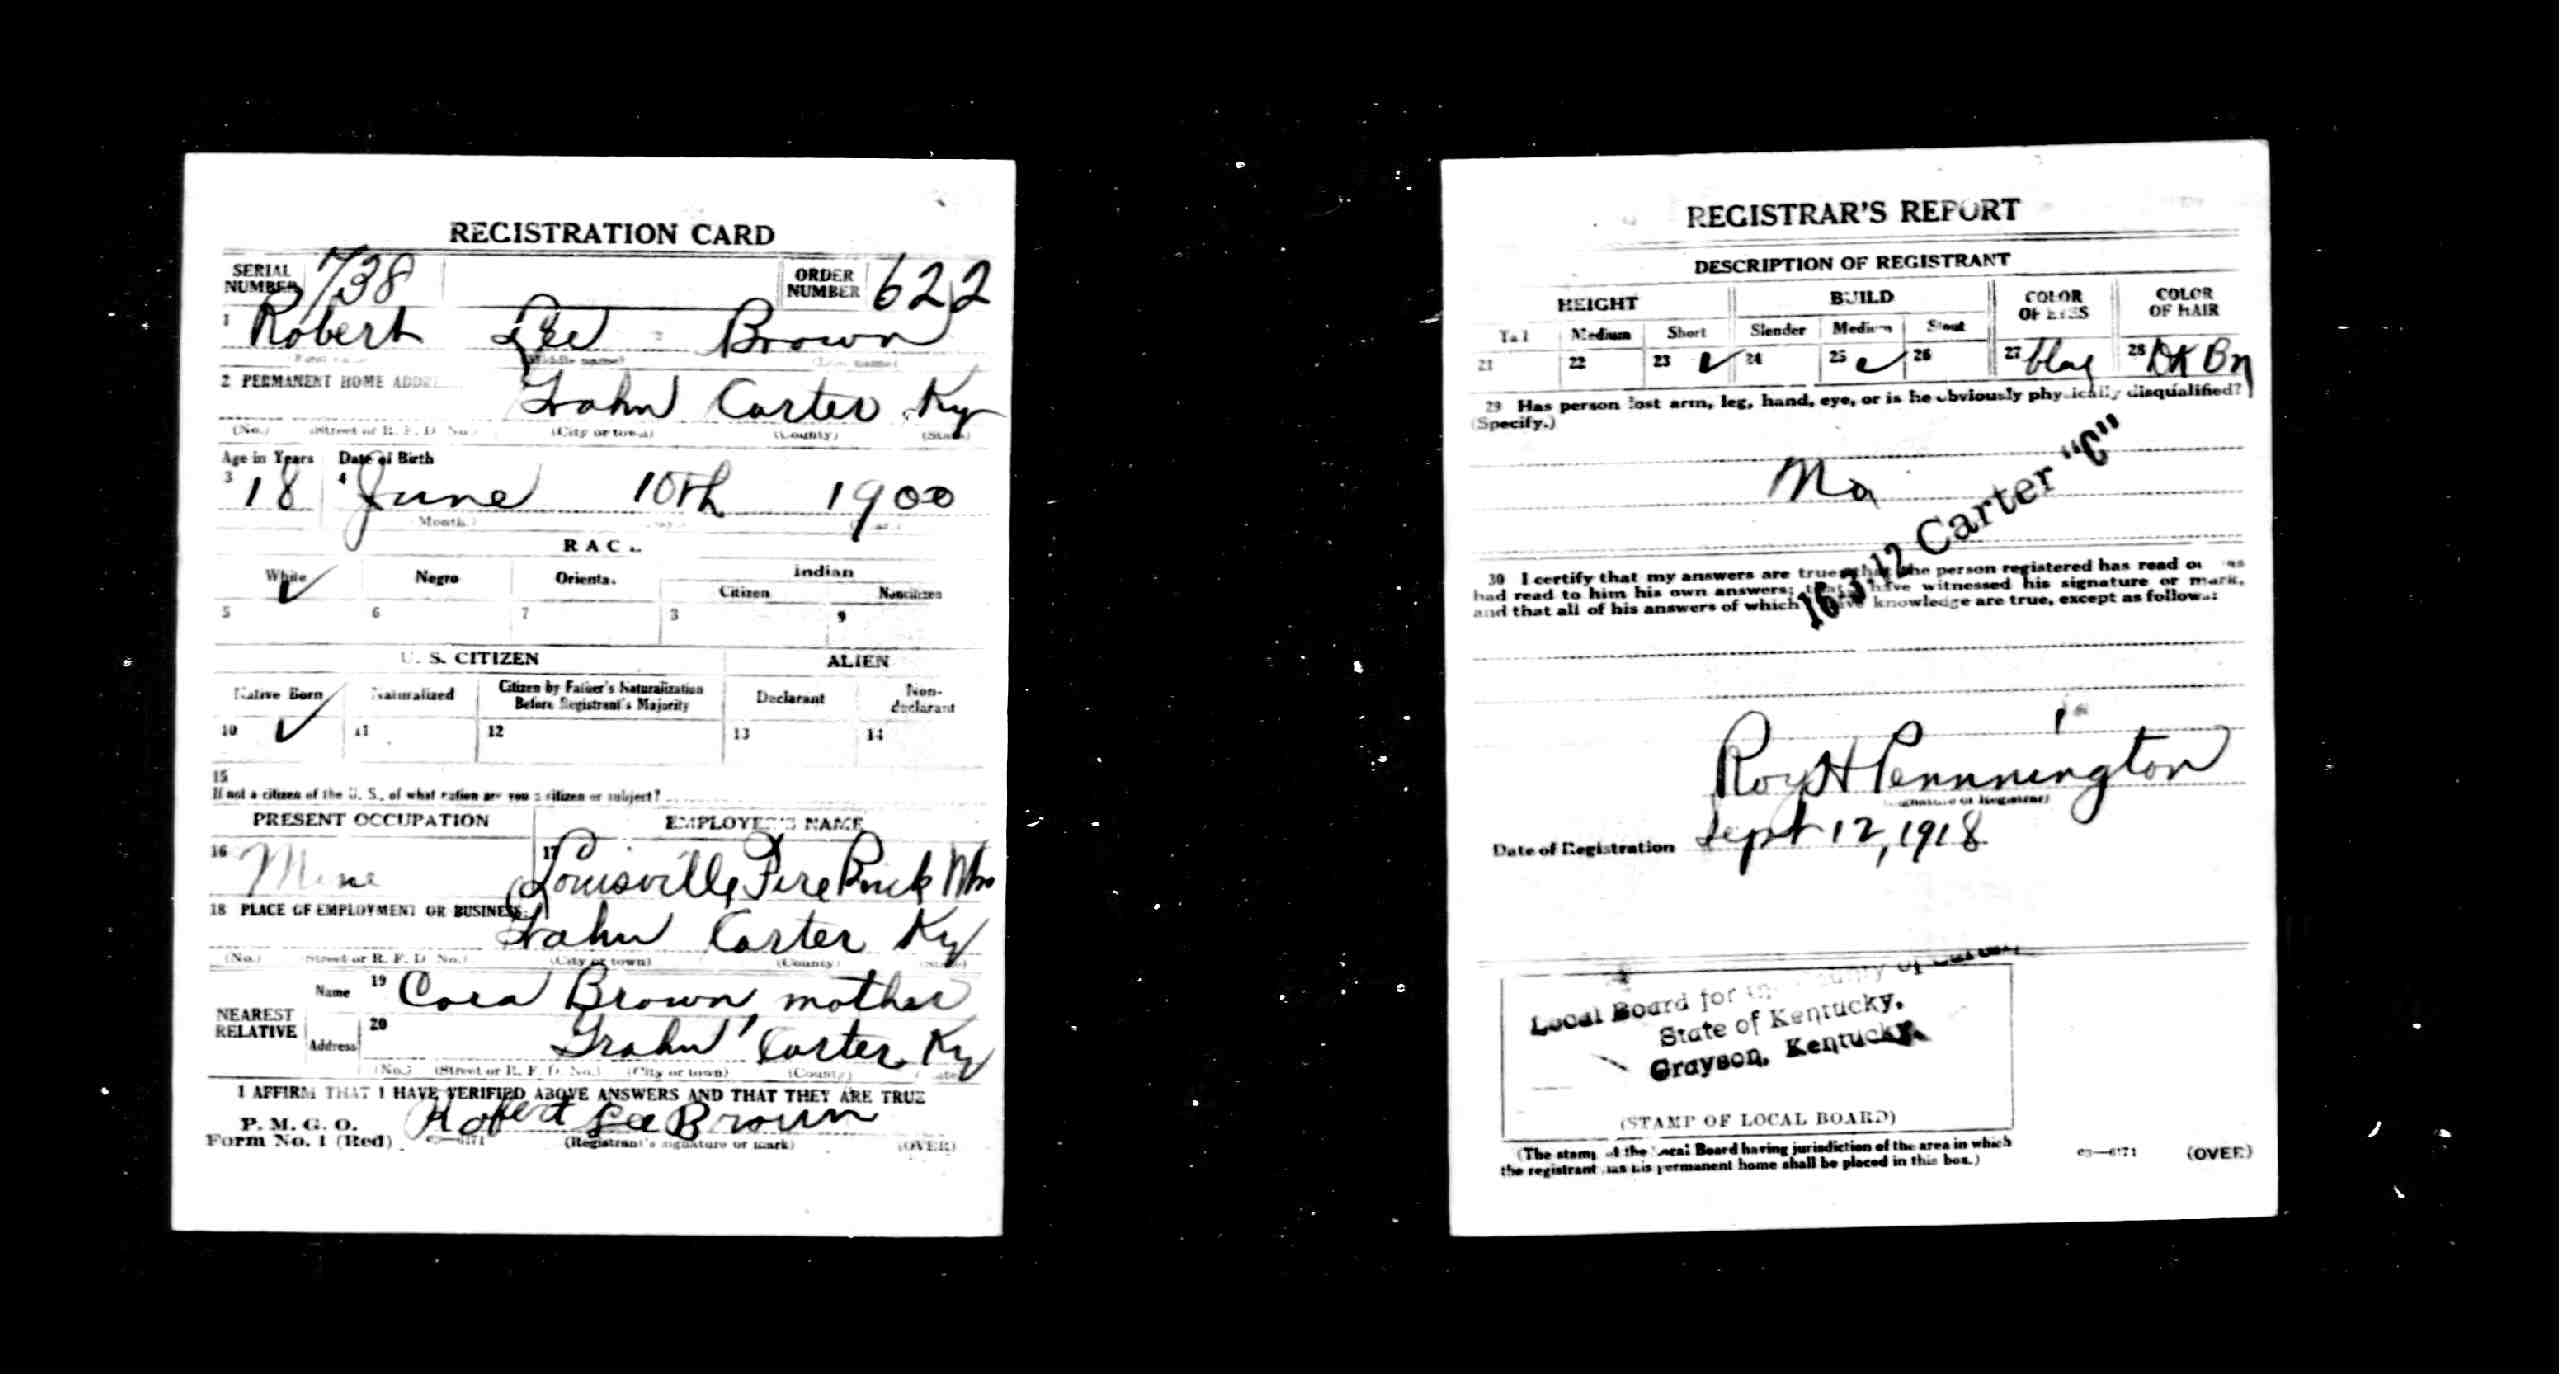 REGISTRATION CARD
SERIAL NUMBER 738 ORDER NUMBER 622
1 Robert Lee Brown
(Middle name)
2 PERMANENT HOME ADDRE
Grahn Carter Ky
(No.) (Street or R. F. D. No.) (City or town) (County) (State)
Age in Years Date of Birth
3 18 4 June 10th 1900
(Month.)
RAC
White Negro Orienta. Indian
Citizen Noncitizen
5 6 7 8 9
U. S. CITIZEN ALIEN
Native Born Naturalized Citizen by Father's Naturalization Before Registrant's Majority Declarant Non-declarant
10 11 12 13 14
15
If not a citizen of the U. S., of what nation are you a citizen or subject?
PRESENT OCCUPATION EMPLOYER'S NAME
16 Mine 17 Louisville Fire Brick
18 PLACE OF EMPLOYMENT OR BUSINESS
Grahn Carter Ky
(No.) (Street or R. F. D. No.) (City or town) (County) (State)
NEAREST RELATIVE
Name 19 Cora Brown, mother
Address 20 Grahn Carter Ky
(No.) (Street or R. F. D. No.) (City or town) (County)
I AFFIRM THAT I HAVE VERIFIED ABOVE ANSWERS AND THAT THEY ARE TRUE
P. M. G. O.
Form No. 1 (Red) Robert Lee Brown
(Registrant's signature or mark) (OVER)
REGISTRAR'S REPORT
DESCRIPTION OF REGISTRANT
HEIGHT BUILD COLOR OF EYES COLOR OF HAIR
Tall Medium Short Slender Medium Stout
21 22 23 24 25 26 27 28 Dk Bn
29 Has person lost arm, leg, hand, eye, or is he obviously physically disqualified?
(Specify.)
No
16-3-12 Carter "C"
30 I certify that my answers are true; that the person registered has read or has
had read to him his own answers; that I have witnessed his signature or mark,
and that all of his answers of which I have knowledge are true, except as follows:
Roy H Pennington
(Signature of Registrar)
Date of Registration Sept 12, 1918
Local Board for the County of Carter
State of Kentucky,
Grayson, Kentucky.
(STAMP OF LOCAL BOARD)
(The stamp of the Local Board having jurisdiction of the area in which
the registrant has his permanent home shall be placed in this box.)
03—6171 (OVER)